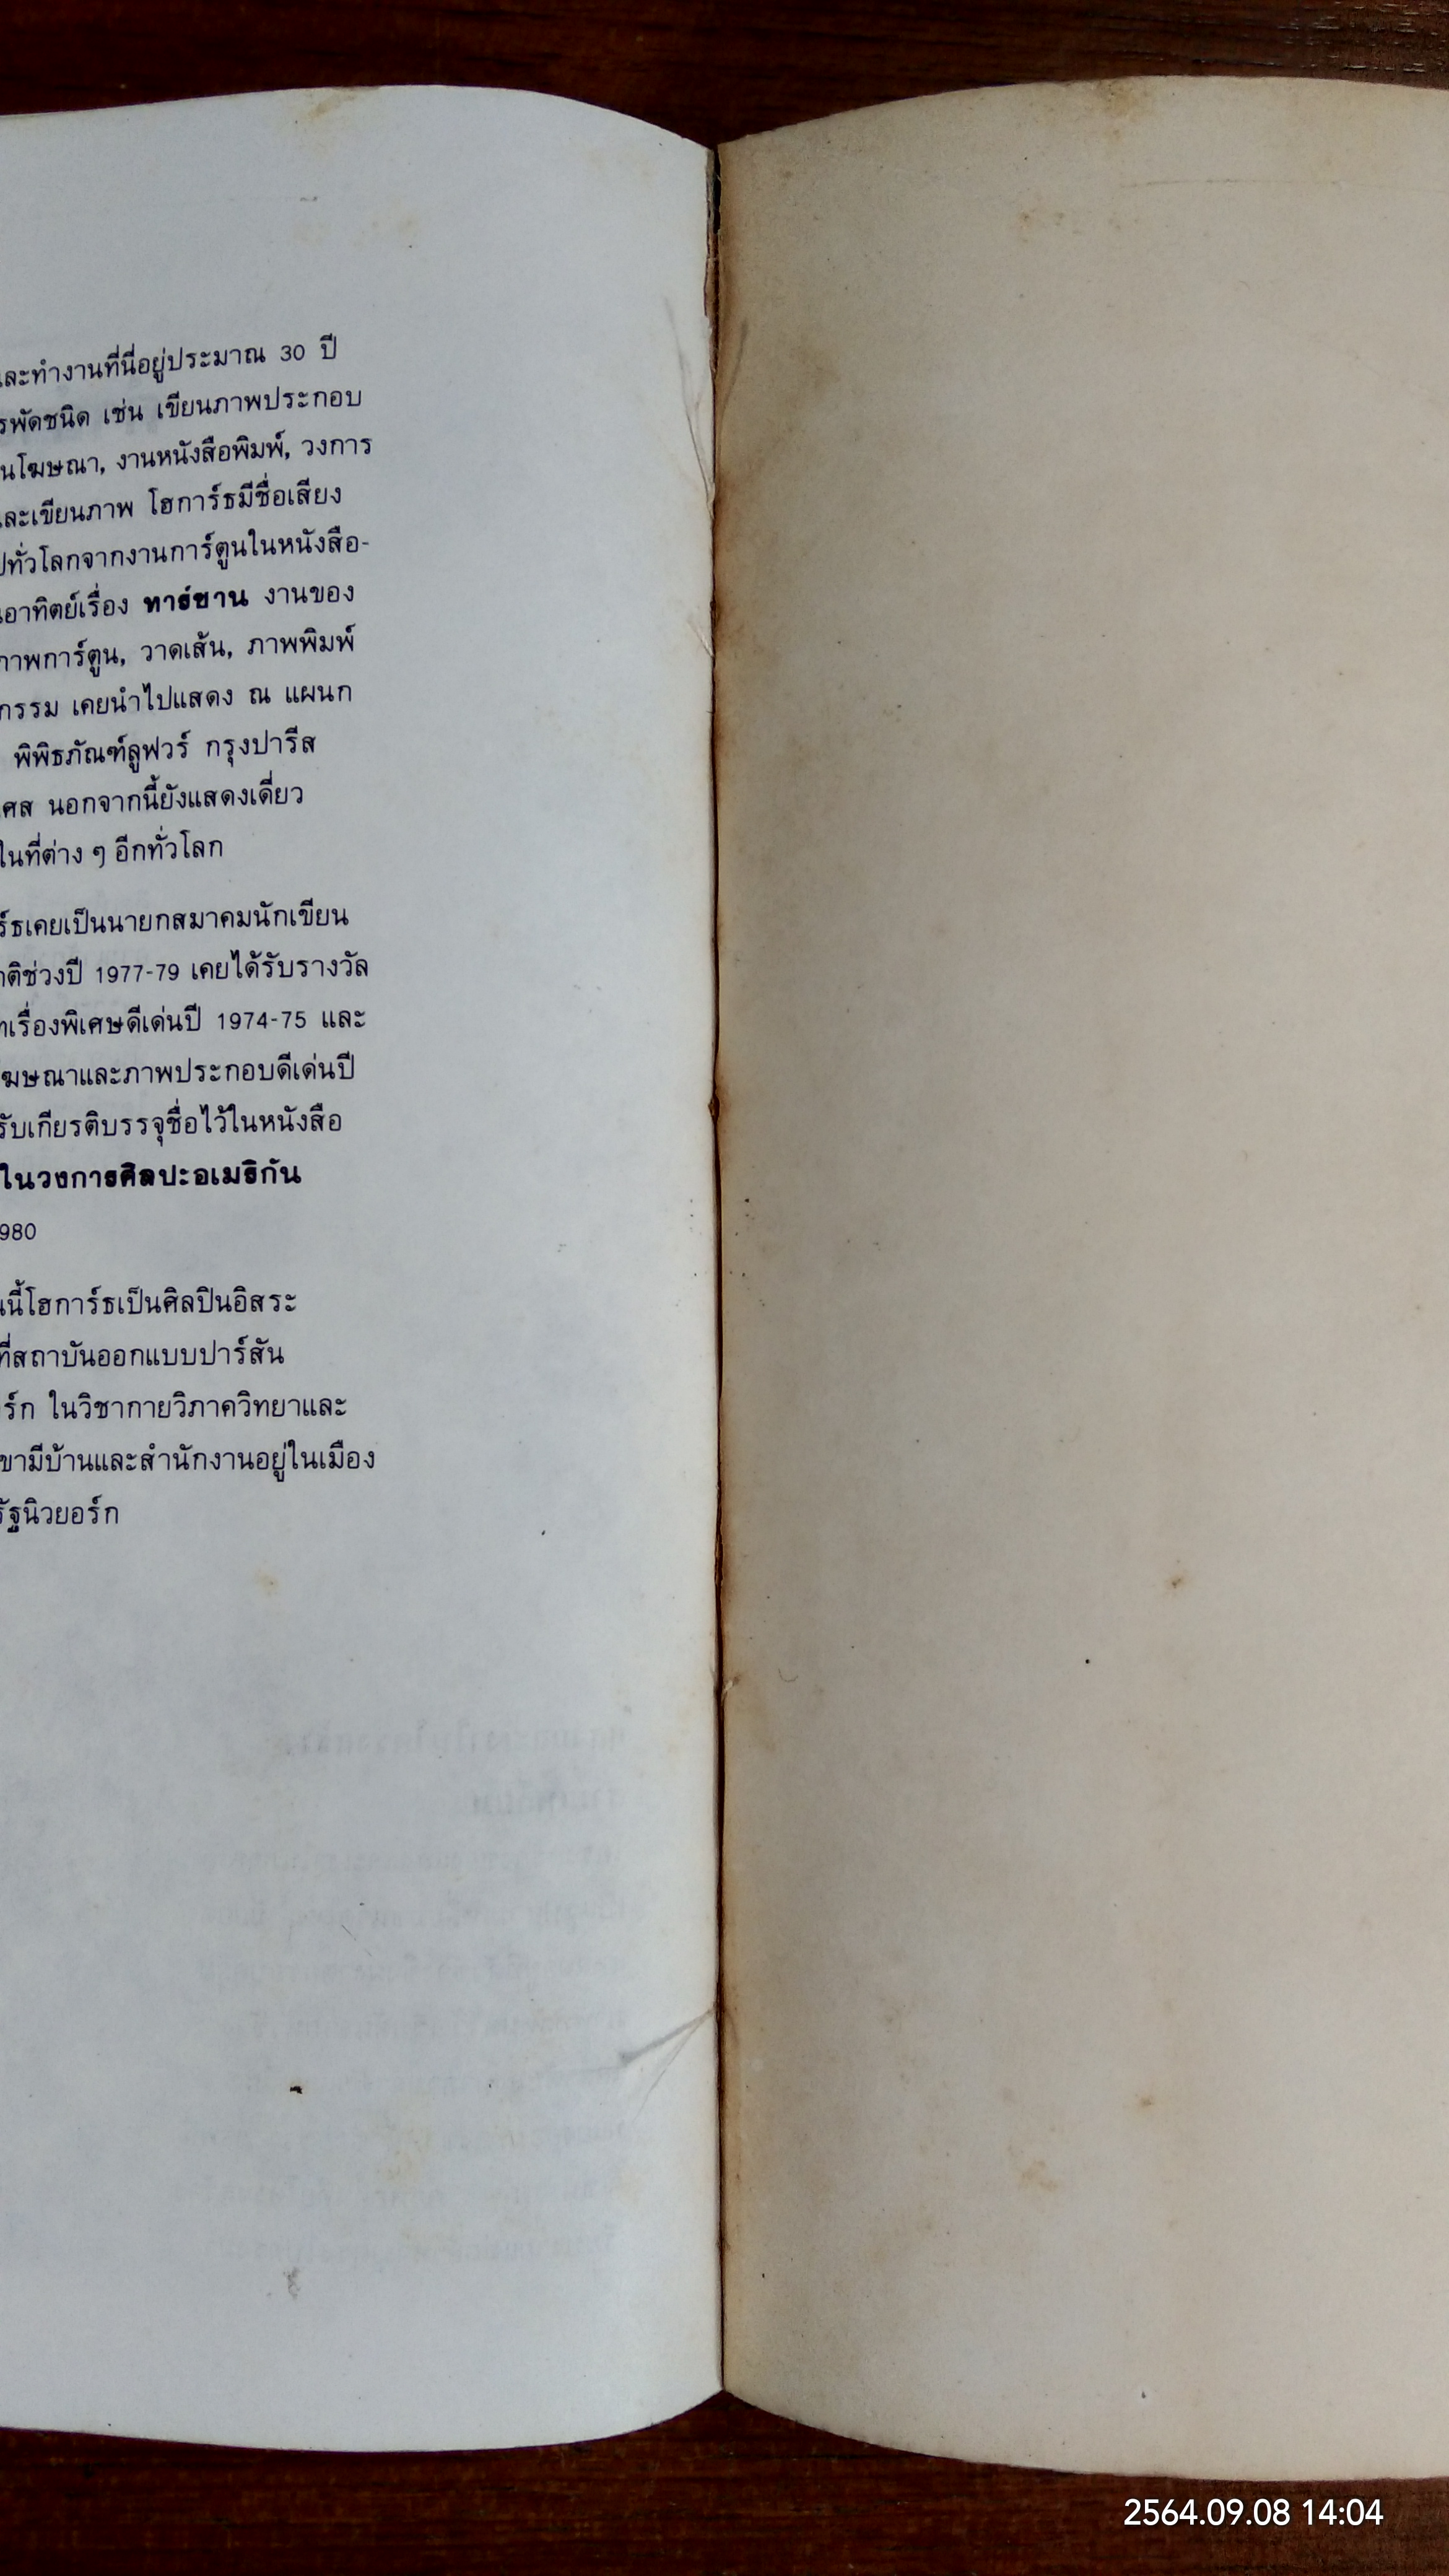 และทำงานที่นี่อยู่ประมาณ 30 ปี
รพัดชนิด เช่น เขียนภาพประกอบ
นโฆษณา, งานหนังสือพิมพ์, วงการ
และเขียนภาพ โฮการ์ธมีชื่อเสียง
ปทั่วโลกจากงานการ์ตูนในหนังสือ-
นอาทิตย์เรื่อง ทาร์ซาน งานของ
ภาพการ์ตูน, วาดเส้น, ภาพพิมพ์
กรรม เคยนำไปแสดง ณ แผนก
พิพิธภัณฑ์ลูฟวร์ กรุงปารีส
ศส นอกจากนี้ยังแสดงเดี่ยว
ในที่ต่าง ๆ อีกทั่วโลก
ร์ธเคยเป็นนายกสมาคมนักเขียน
าติช่วงปี 1977-79 เคยได้รับรางวัล
ทเรื่องพิเศษดีเด่นปี 1974-75 และ
ฆษณาและภาพประกอบดีเด่นปี
รับเกียรติบรรจุชื่อไว้ในหนังสือ
ในวงการศิลปะอเมริกัน
980
นนี้โฮการ์ธเป็นศิลปินอิสระ
ที่สถาบันออกแบบปาร์สัน
ร์ก ในวิชากายวิภาควิทยาและ
ขามีบ้านและสำนักงานอยู่ในเมือง
รัฐนิวยอร์ก
2564.09.08 14:04